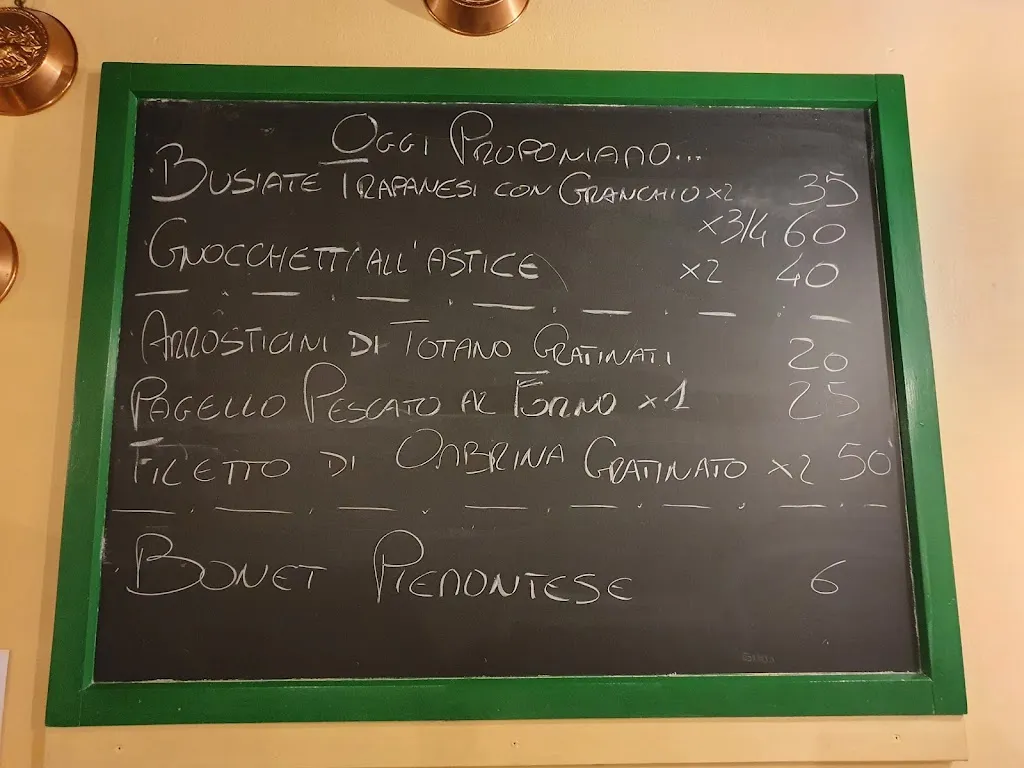 OGGI PROPONIAMO...
BUSIATE TRAPANESI CON GRANCHIO x2 35
x3/4 60
GNOCCHETTI ALL'ASTICE x2 40
ARROSTICINI DI TOTANO GRATINATI 20
PAGELLO PESCATO AL FORNO x1 25
FILETTO DI OMBRINA GRATINATO x2 50
BONET PIEMONTESE 6